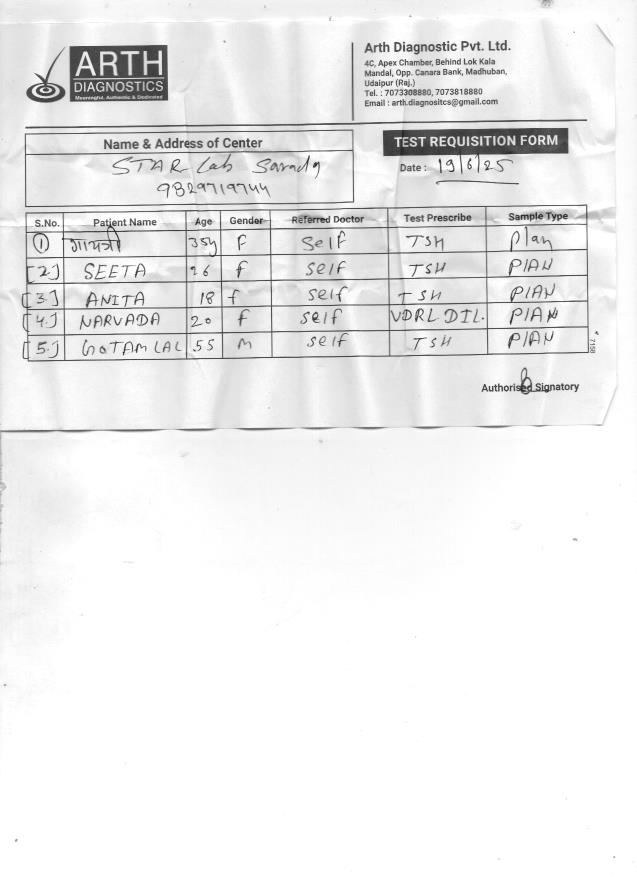 ARTH
DIAGNOSTICS
Meaningful, Authentic & Dedicated
Arth Diagnostic Pvt. Ltd.
4C, Apex Chamber, Behind Lok Kala
Mandal, Opp. Canara Bank, Madhuban,
Udaipur (Raj.)
Tel. : 7073308880, 7073818880
Email : arth.diagnositcs@gmail.com
Name & Address of Center
STAR Lab Sarada
9829719744
TEST REQUISITION FORM
Date : 19/6/25
S.No. Patient Name Age Gender Referred Doctor Test Prescribe Sample Type
1 गायत्री 35y F Self TSH Plan
[2.] SEETA 26 f self TSH PlAN
[3.] ANITA 18 f self TSH PlAN
[4.] NARVADA 20 f self VDRL DIL. PlAN
[5.] GOTAM LAL 55 M self TSH PlAN
7158
Authorised Signatory